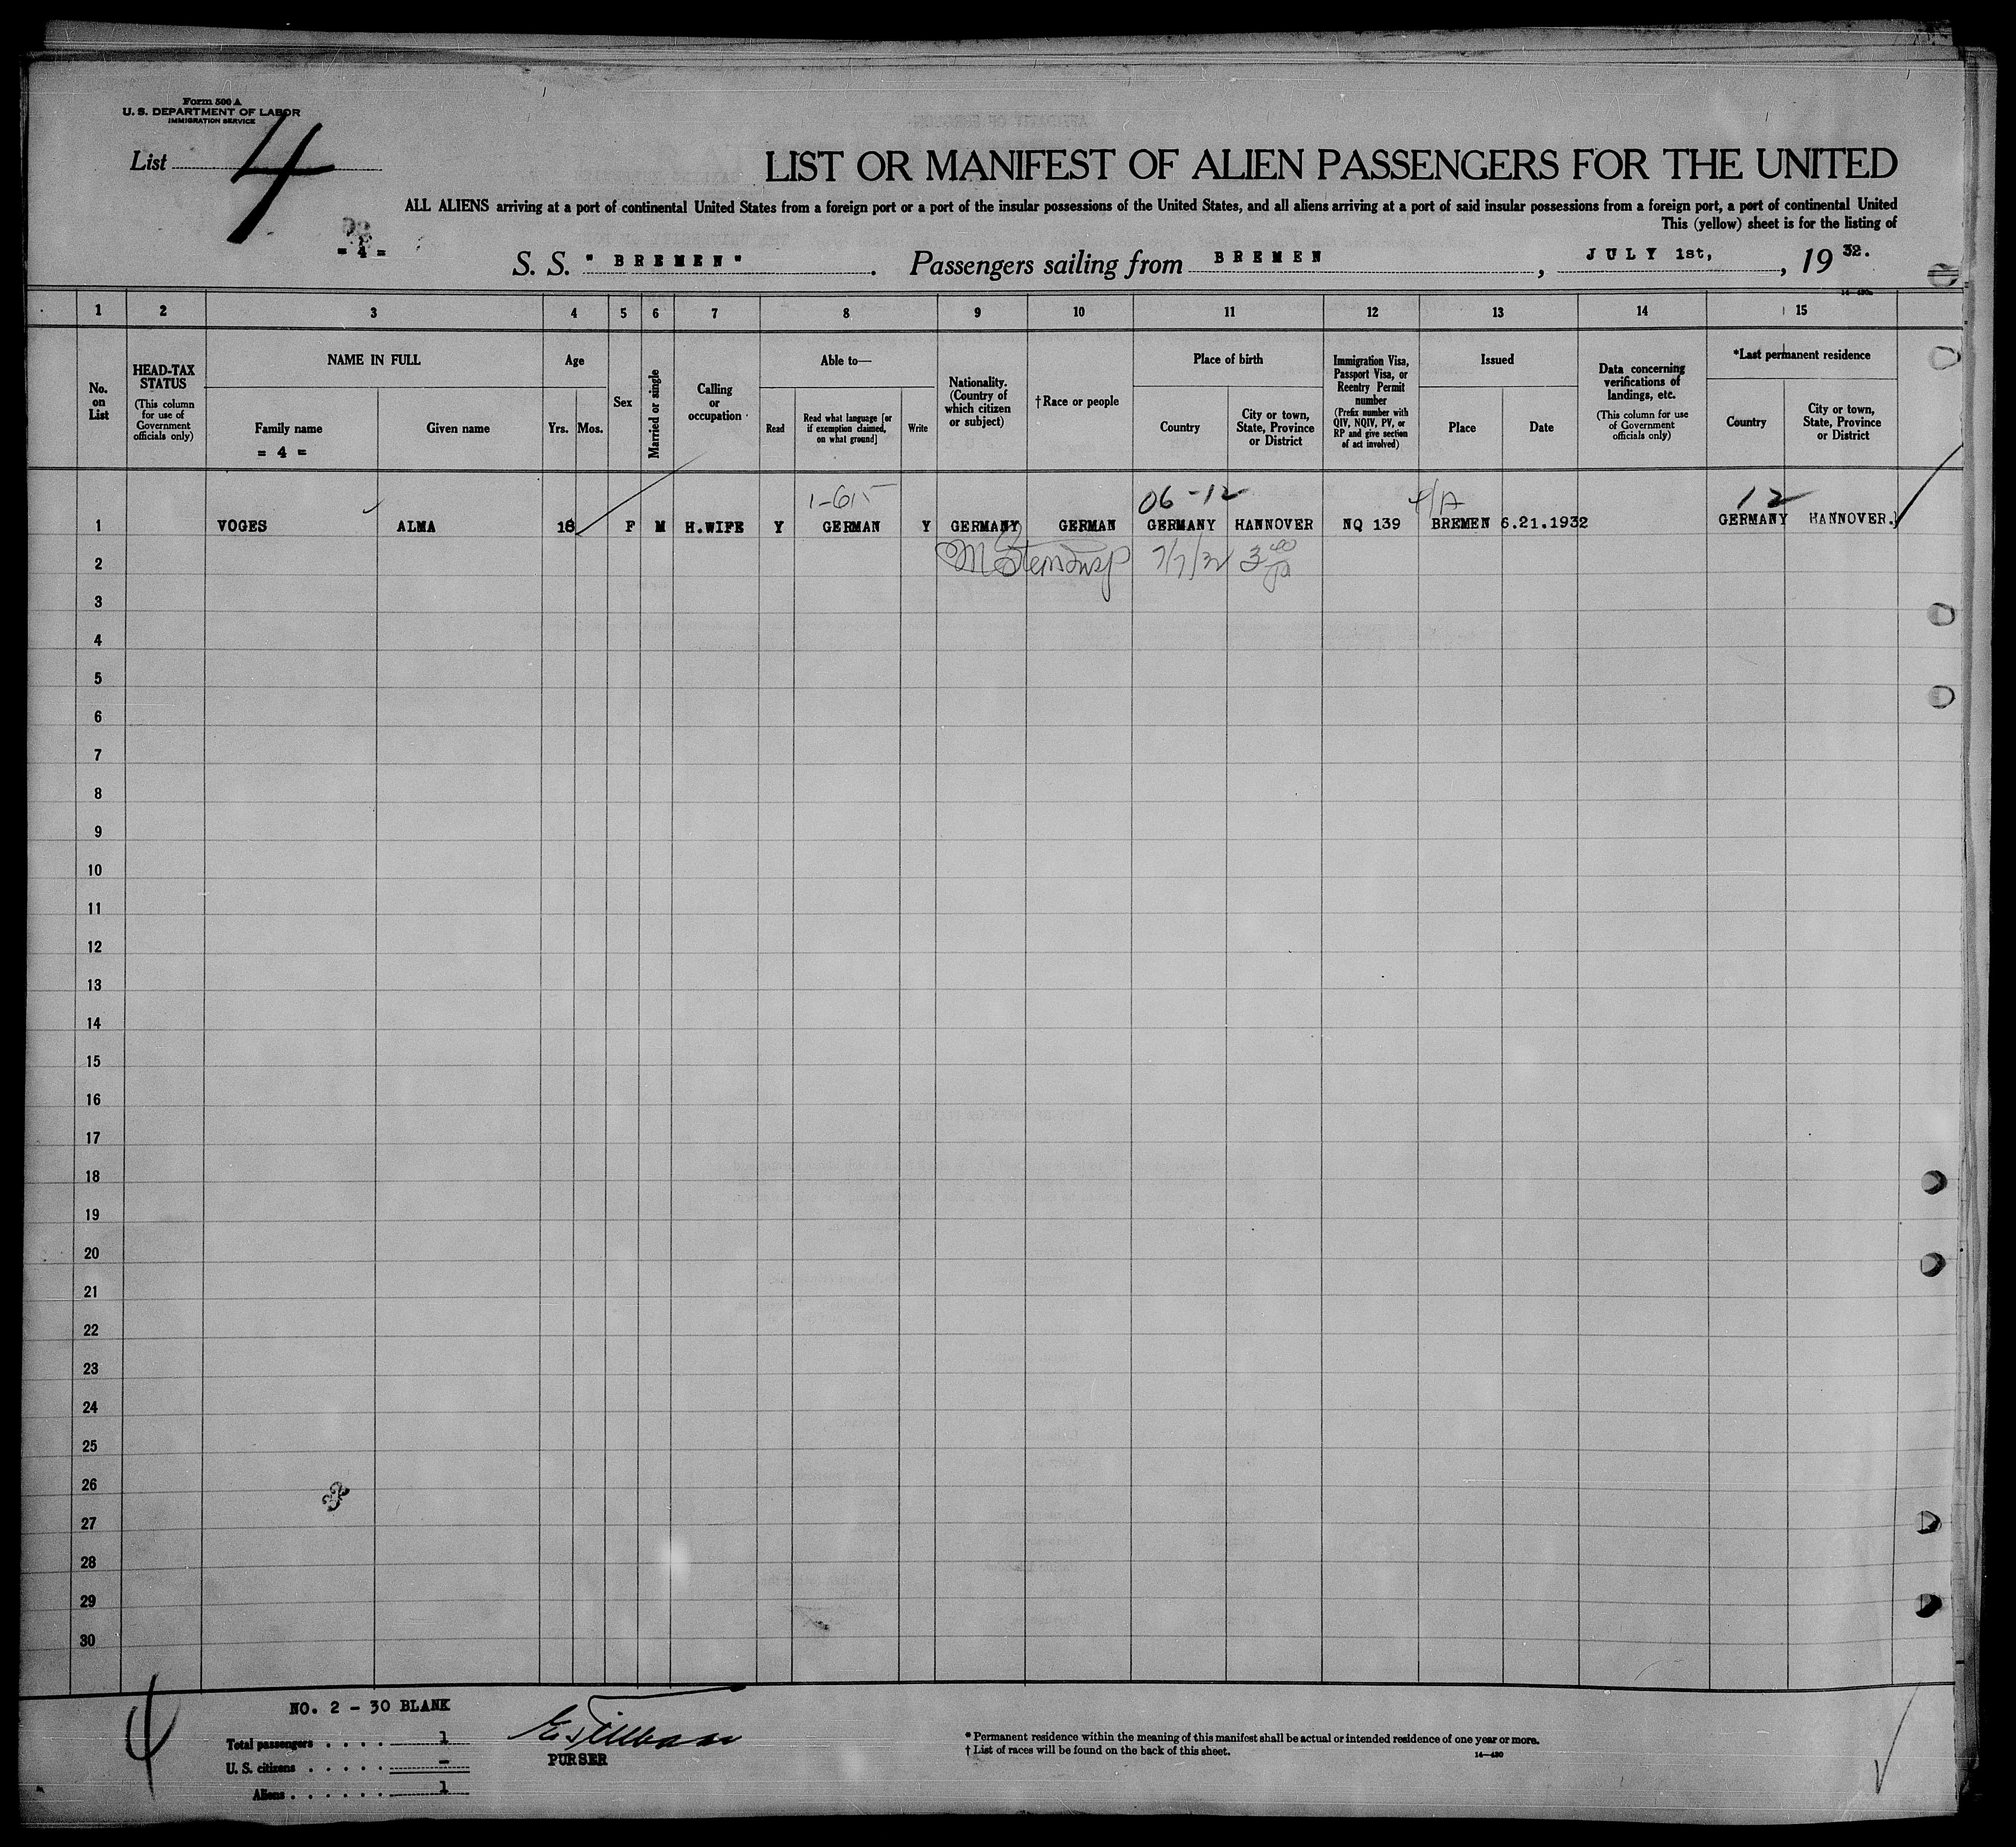 Form 500 A
U. S. DEPARTMENT OF LABOR
IMMIGRATION SERVICE
List 4
LIST OR MANIFEST OF ALIEN PASSENGERS FOR THE UNITED
ALL ALIENS arriving at a port of continental United States from a foreign port or a port of the insular possessions of the United States, and all aliens arriving at a port of said insular possessions from a foreign port, a port of continental United
This (yellow) sheet is for the listing of
= 4 =
S. S. " BREMEN " . Passengers sailing from BREMEN , JULY 1st, , 19 32.
1 2 3 4 5 6 7 8 9 10 11 12 13 14 15
No. on List
HEAD-TAX STATUS (This column for use of Government officials only)
NAME IN FULL
Family name
= 4 =
Given name
Age
Yrs. Mos.
Sex
Married or single
Calling or occupation
Able to—
Read
Read what language [or if exemption claimed, on what ground]
Write
Nationality. (Country of which citizen or subject)
†Race or people
Place of birth
Country
City or town, State, Province or District
Immigration Visa, Passport Visa, or Reentry Permit number (Prefix number with QIV, NQIV, PV, or RP and give section of act involved)
Issued
Place
Date
Data concerning verifications of landings, etc. (This column for use of Government officials only)
*Last permanent residence
Country
City or town, State, Province or District
1-615 06-12 12
1 VOGES ALMA F M H.WIFE Y GERMAN Y GERMANY GERMAN GERMANY HANNOVER NQ 139 BREMEN 6.21.1932 GERMANY HANNOVER.
2 7/7/32
3
4
5
6
7
8
9
10
11
12
13
14
15
16
17
18
19
20
21
22
23
24
25
26
27
28
29
30
4
NO. 2 - 30 BLANK
Total passengers . . . . 1
U. S. citizens . . . . . —
Aliens . . . . . . 1
PURSER
* Permanent residence within the meaning of this manifest shall be actual or intended residence of one year or more.
† List of races will be found on the back of this sheet.
14—430